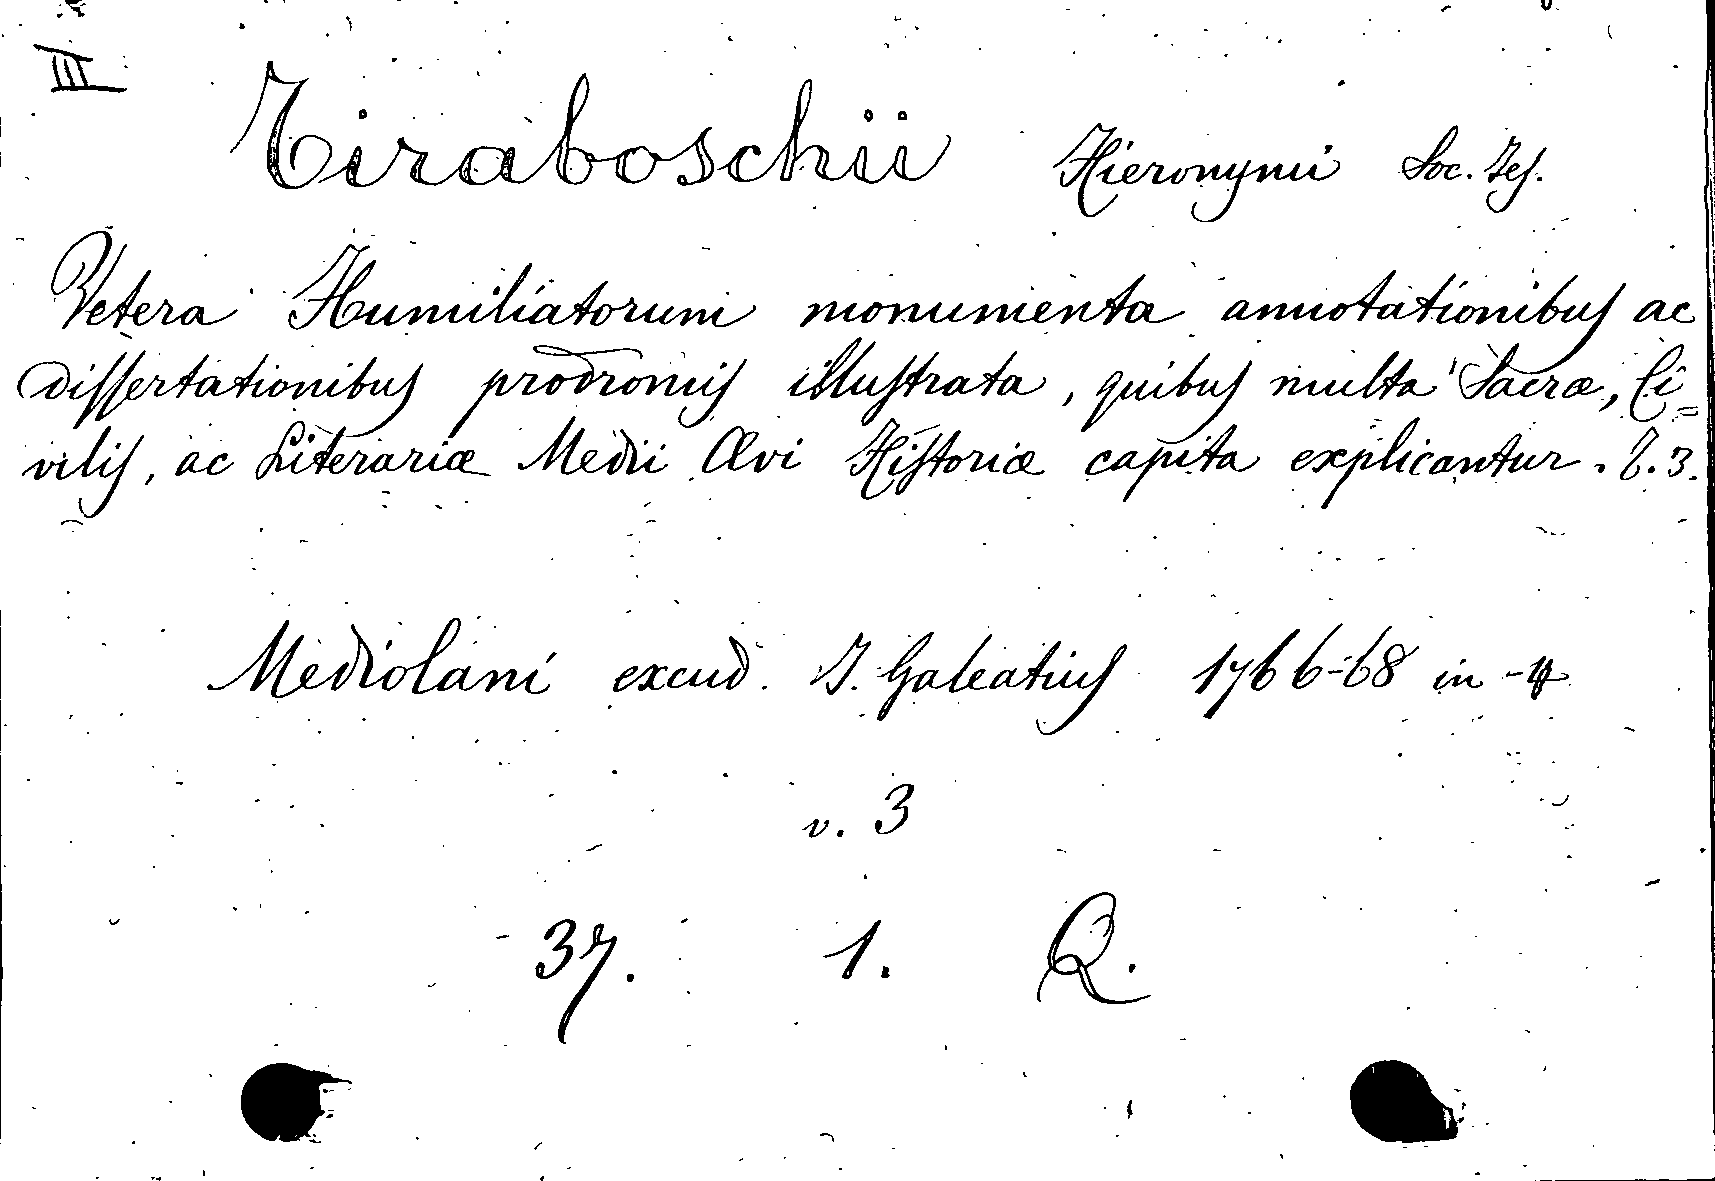 III
Tiraboschii Hieronymi Soc. Jes.
Vetera Humiliatorum monumenta annotationibus ac
dissertationibus prodromis illustrata, quibus multa Sacræ, Ci=
vilis, ac Literariæ Medii Ævi Historiæ capita explicantur. T. 3.
Mediolani excud. J. Galeatius 1766-68 in-4
v. 3
37. 1. Q.